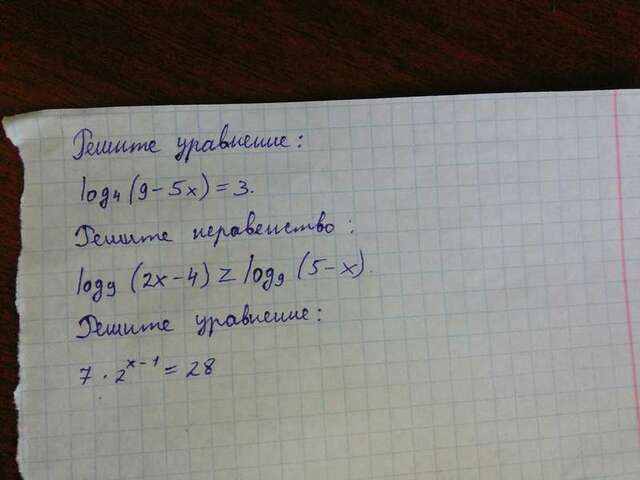 Решите уравнение:
log₄(9-5x)=3.
Решите неравенство:
log₉(2x-4)≥log₉(5-x).
Решите уравнение:
7·2ˣ⁻¹=28